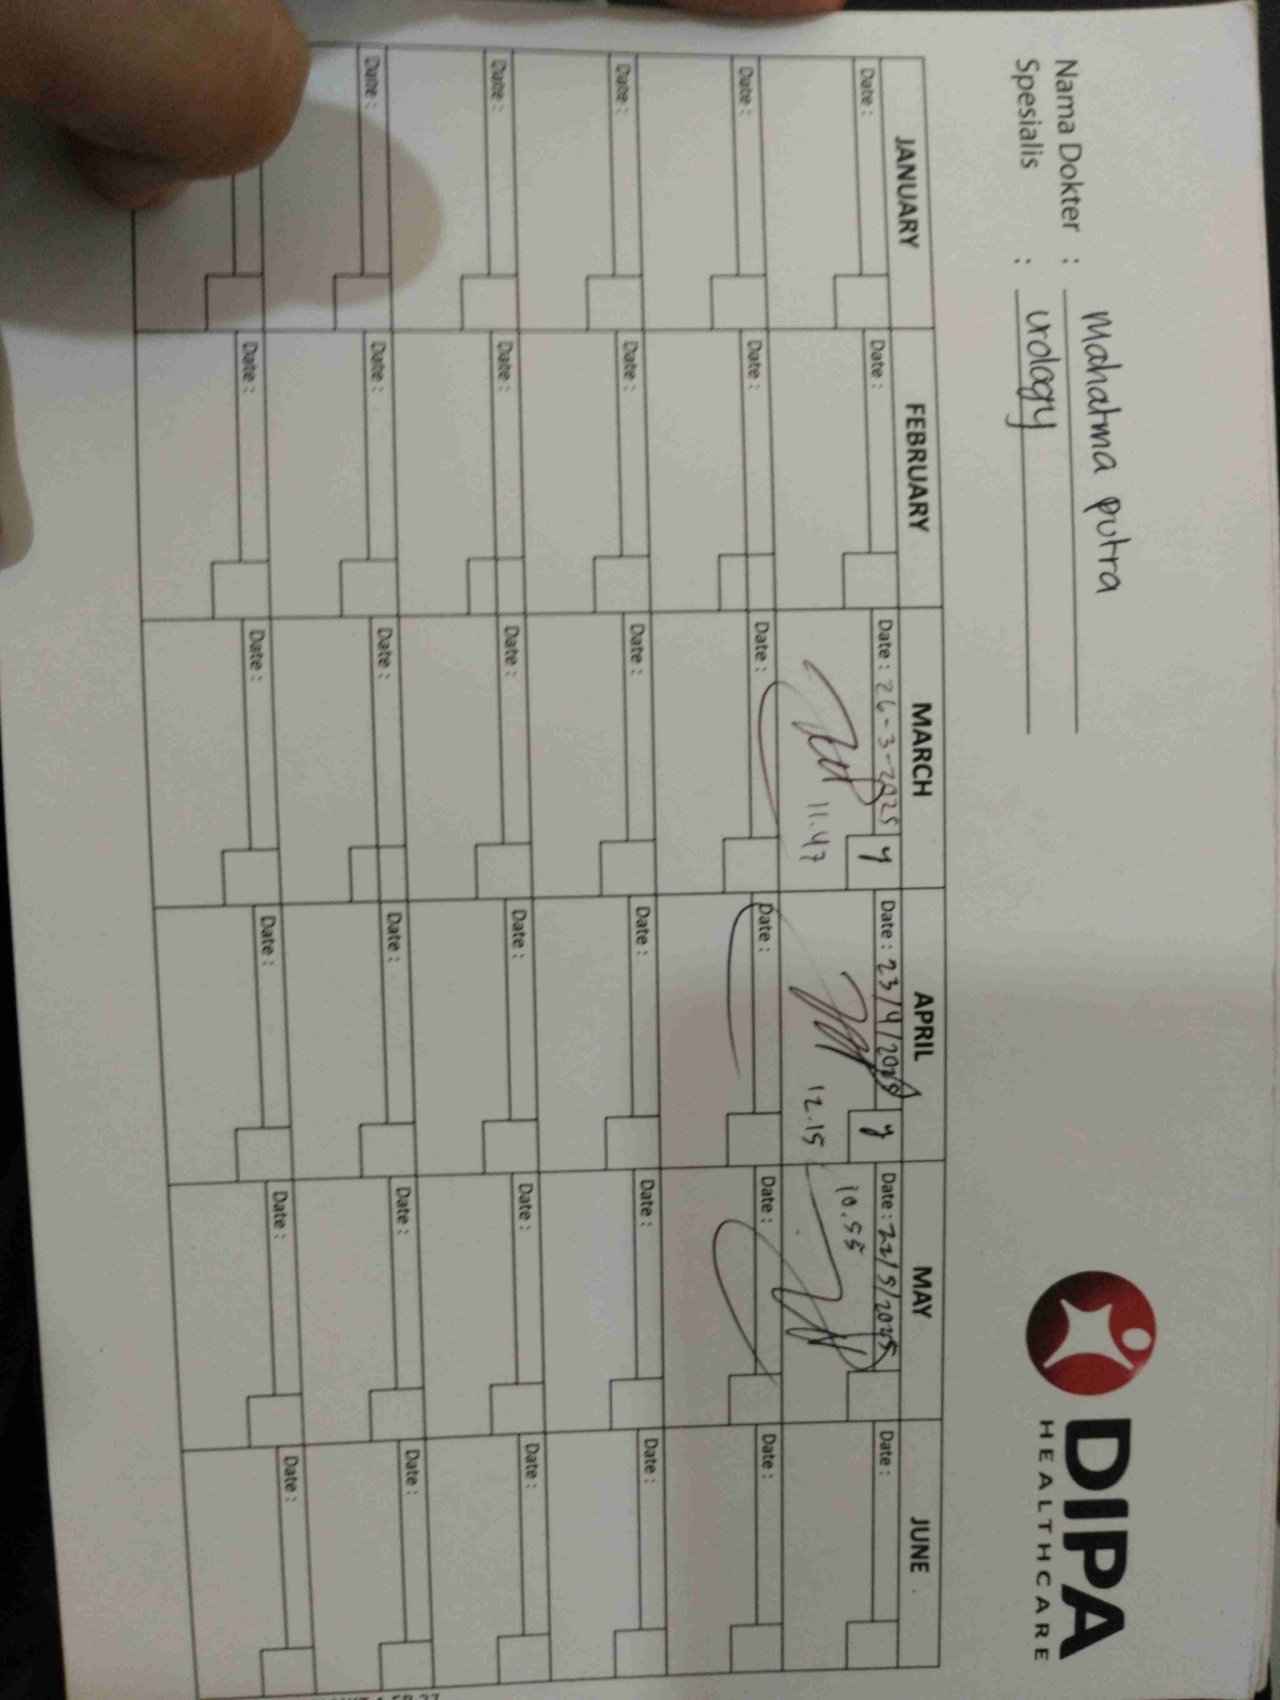 Nama Dokter : Mahatma Putra
Spesialis : Urology
DIPA
HEALTHCARE
JANUARY FEBRUARY MARCH APRIL MAY JUNE
Date : Date : Date : 26-3-2025 y Date : 23/4/2025 y Date : 22/5/2025 Date :
11.47 12.15 10.55
Date : Date : Date : Date : Date : Date :
Date : Date : Date : Date : Date : Date :
Date : Date : Date : Date : Date : Date :
Date : Date : Date : Date : Date : Date :
Date : Date : Date : Date : Date :